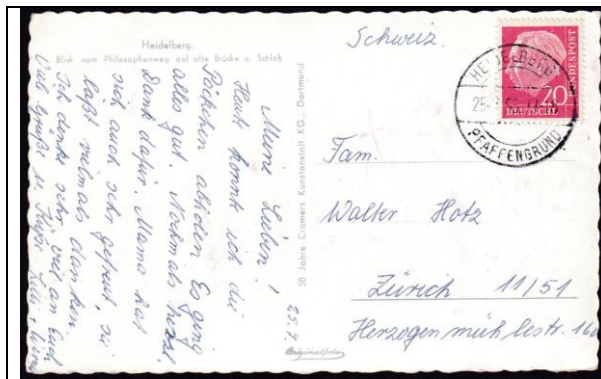 Heidelberg.
Blick vom Philosophenweg auf alte Brücke u. Schloß
25.7.
Meine Lieben!
Heut konnt ich die
Päckchen abholen. Es ging
alles gut. Nochmals herzl.
Dank dafür. Mama hat
sich auch sehr gefreut, sie
läßt vielmals danken.
Ich denke sehr viel an Euch
Viele Grüße u. Küsse
50 Jahre Cramers Kunstanstalt KG., Dortmund
Originalfoto
Schweiz.
HEIDELBERG
PFAFFENGRUND
20
DEUTSCHE
BUNDESPOST
Fam.
Walter Hotz
Zürich 11/51
Herzogenmühlestr.